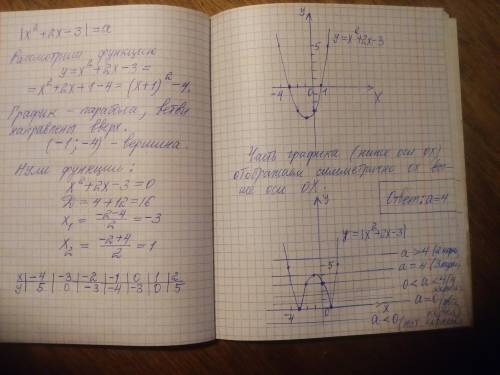 |x² + 2x - 3| = a
Рассмотрим функцию
y = x² + 2x - 3 =
= x² + 2x + 1 - 4 = (x + 1)² - 4,
График - парабола, ветви
направлены вверх.
(-1; -4) - вершина.
Нули функции:
x² + 2x - 3 = 0
D = 4 + 12 = 16
x₁ = (-2 - 4)/2 = -3
x₂ = (-2 + 4)/2 = 1
x | -4 | -3 | -2 | -1 | 0 | 1 | 2
y | 5 | 0 | -3 | -4 | -3 | 0 | 5
y
5
y = x² + 2x - 3
-4
0
1
x
Часть графика (ниже оси OX)
отображаем симметрично ох вы-
ше оси OX.
Ответ: a = 4
y
y = |x² + 2x - 3|
5
a > 4
a = 4
0 < a < 4
a = 0
a < 0
-4
x